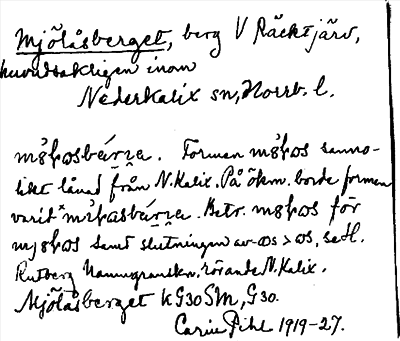 Mjölåsberget, berg V Räcktjärv,
huvudsakligen inom
Nederkalix sn, Norrb. l.
Formen sanno-
likt lånad från N.Kalix. På ökm. borde formen
varit Betr. för
samt slutningen av -os > os, se H.
Rutberg Namngranskn. rörande N.Kalix.
Mjölåsberget k G30 SM, G30.
Carin Pihl 1919-27.